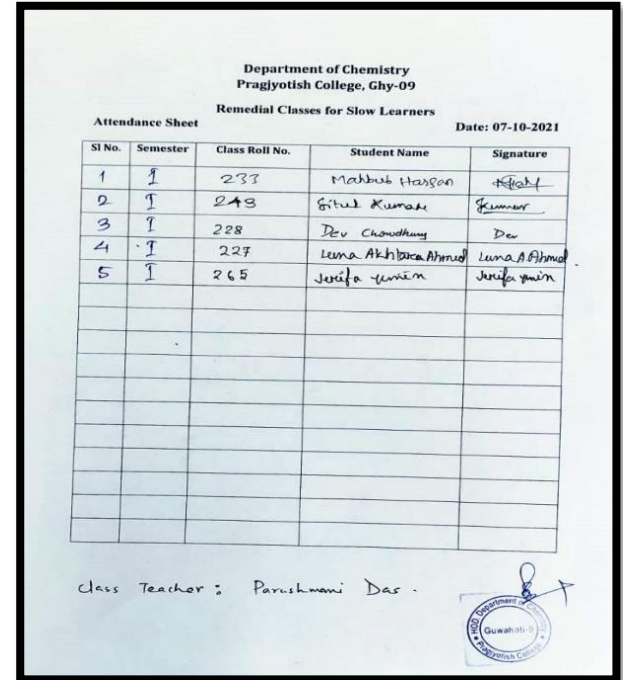 Department of Chemistry
Pragjyotish College, Ghy-09
Remedial Classes for Slow Learners
Attendance Sheet
Date: 07-10-2021
Sl No. Semester Class Roll No. Student Name Signature
1 I 233 Mahbub Hassan
2 I 243 Kumar Kumar
3 I 228 Dev Chowdhury Dev
4 I 227 Luna Akhtara Ahmed Luna A Ahmed
5 I 265 Jerifa yemin Jerifa yemin
Class Teacher : Parashmani Das.
HOD, Department of Chemistry
Guwahati-9
Pragjyotish College